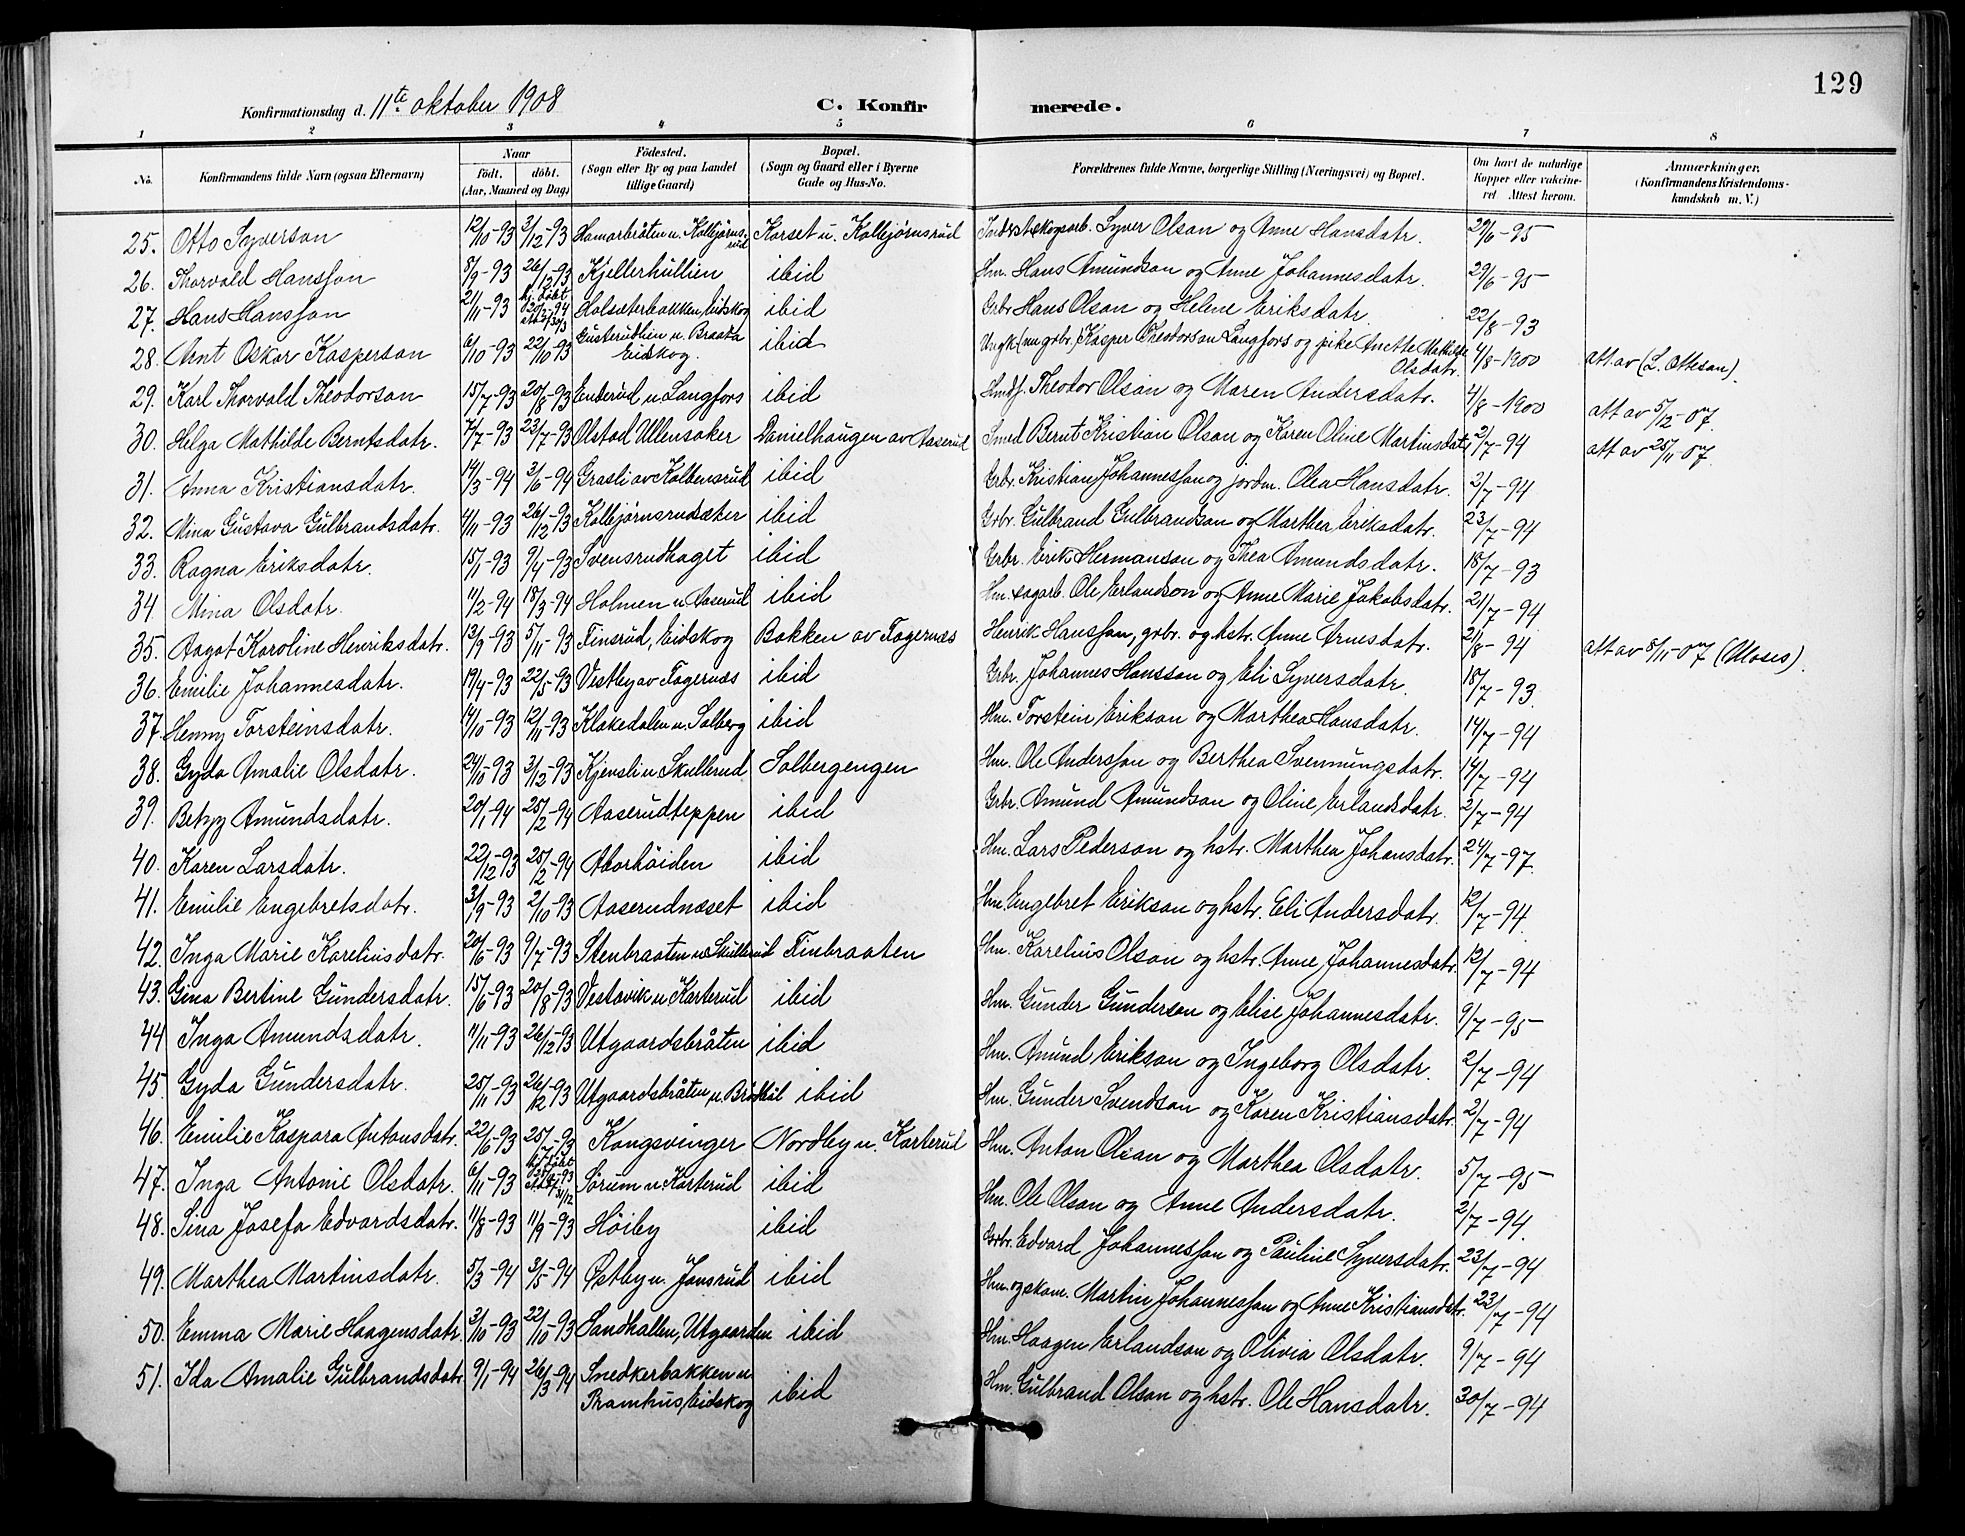 129
Konfirmationsdag d. 11te oktober 1908 C. Konfir merede.
1 2 3 4 5 6 7 8
No. Konfirmandens fulde Navn (ogsaa Efternavn) Naar födt. döbt. (Aar, Maaned og Dag) Födested. (Sogn eller By og paa Landet tillige Gaard) Bopæl. (Sogn og Gaard eller i Byerne Gade og Hus-No. Forældrenes fulde Navne, borgerlige Stilling (Næringsvei) og Bopæl. Om havt de naturlige Kopper eller vakcineret Attest herom. Anmærkninger. (Konfirmandens Kristendomskundskab m. V.)
25. Otto Syverson 12/10-93 3/12-93 Hamarbråten u. Kolbjørnsrud Korset u. Kolbjørnsrud skogsarb. Syver Olson og Anne Hansdatr. 29/6-95
26. Thorvald Hansson 8/9-93 26/12-93 Kjellerhullien ibid Hm. Hans Amundson og Anne Johannesdatr. 29/6-95
27. Hans Hansson 21/11-93 hj. døbt Holsæterbakken, Eidskog ibid Grbr. Hans Olson og Helene Eriksdatr. 22/8-93
28. Arnt Oskar Kasperson 6/10-93 22/10-93 Gusterudlien u. Braata Eidskog. ibid Ungk. (nu grbr.) Kasper Theodorson Langfors og pike Anette Mathilde Olsdatr. 4/8-1900 att av (L. Otteson).
29. Karl Thorvald Theodorson 15/7-93 20/8-93 Enderud u. Langfors ibid Hmdf. Theodor Olson og Maren Andersdatr. 4/8-1900 att av 5/12-07.
30. Helga Mathilde Berntsdatr. 7/7-93 23/7-93 Olstad Ullensaker Danielhaugen av Aaserud Smed Bernt Kristian Olson og Karen Oline Martinsdatr 2/7-94 att av 25/11-07.
31. Anna Kristiansdatr. 14/3-94 3/6-94 Grasli av Kolbensrud ibid Grbr. Kristian Johannesson og jordm. Olea Hansdatr. 2/7-94
32. Mina Gustava Gulbrandsdatr. 4/11-93 26/12-93 Kolbjørnsrudsæter ibid Grbr. Gulbrand Gulbrandson og Marthea Eriksdatr. 23/7-94
33. Ragna Eriksdatr. 15/1-93 9/4-93 Svensrudhaget ibid Grbr. Erik Hermanson og Thea Amundsdatr. 18/7-93
34 Mina Olsdatr. 11/2-94 18/3-94 Holmen u. Aaserud ibid Hm. sagarb. Ole Erlandson og Anne Marie Jakobsdatr. 21/7-94
35. Aagot Karoline Henriksdatr. 13/9-93 5/11-93 Finsrud, Eidskog Bakken av Fagernæs Henrik Hansson, grbr. og hstr. Anne Arnesdatr. 21/8-94 att av 8/11-07 (Moses).
36. Emilie Johannesdatr. 19/4-93 22/5-93 Vestby av Fagernæs ibid Grbr. Johannes Hansson og Eli Syversdatr. 18/7-93.
37. Henny Torsteinsdatr. 14/10-93 12/11-93 Klakedalen u. Solberg ibid Hm. Torstein Erikson og Marthea Hansdatr. 14/7-94
38. Gyda Amalie Olsdatr. 24/10-93 3/12-93 Kjensli u. Skullerud Solbergengen Hm. Ole Andersson og Berthea Svenningsdatr. 14/7-94
39. Betzy Amundsdatr. 20/1-94 25/2-94 Aaserudteppen ibid Grbr. Amund Amundson og Oline Erlandsdatr. 2/7-94
40. Karen Larsdatr. 22/12-93 25/2-94 Aborhöiden ibid Hm. Lars Pederson og hstr. Marthea Johansdatr. 24/7-97.
41. Emilie Engebretsdatr. 3/9-93 2/10-93 Aaserudnæset ibid Hm. Engebret Erikson og hstr. Eli Andersdatr. 12/7-94.
42. Inga Marie Kareliusdatr. 20/6-93 9/7-93 Stenbraaten u. Skullerud Finbraaten Hm. Karelius Olson og hstr. Anne Johannesdatr. 12/7-94
43. Gina Bertine Gundersdatr. 15/6-93 20/8-93 Vestavik u. Karterud ibid Hm. Gunder Gunderson og Elise Johannesdatr. 9/7-95
44 Inga Amundsdatr. 11/11-93 26/12-93 Utgaardsbråten ibid Hm. Amund Erikson og Ingeborg Olsdatr. 2/7-94
45. Gyda Gundersdatr. 25/11-93 26/12-93 Utgaardsbråten u. ibid Hm. Gunder Svendson og Karen Kristiansdatr. 2/7-94
46. Emilie Kaspara Antonsdatr. 22/6-93 25/7-93 Kongsvinger Nordby u. Karterud Hm. Anton Olsan og Marthea Olsdatr. 5/7-95
47. Inga Antonie Olsdatr. 6/11-93 hj. døbt Sørum u. Karterud ibid Hm. Ole Olson og Anne Andersdatr. 2/7-94.
48. Sina Josefa Edvardsdatr. 11/8-93 11/9-93 Höiby ibid Grbr. Edvard Johannesson og Pauline Syversdatr. 23/7-94
49. Marthea Martinsdatr. 5/3-94 3/5-94 Østby u. Jansrud ibid Hm. og skom. Martin Johannesson og Anne Kristiansdatr. 23/7-94
50. Emma Marie Haagensdatr. 3/10-93 22/10-93 Sandhallen, Utgaarden ibid Hm. Haagen Erlandson og Olivia Olsdatr. 9/7-94
51. Ida Amalie Gulbrandsdatr. 9/1-94 26/3-94 Snedkerbakken u. Pramhus, Eidskog ibid Hm. Gulbrand Olson og hstr. Ole Hansdatr. 30/7-94